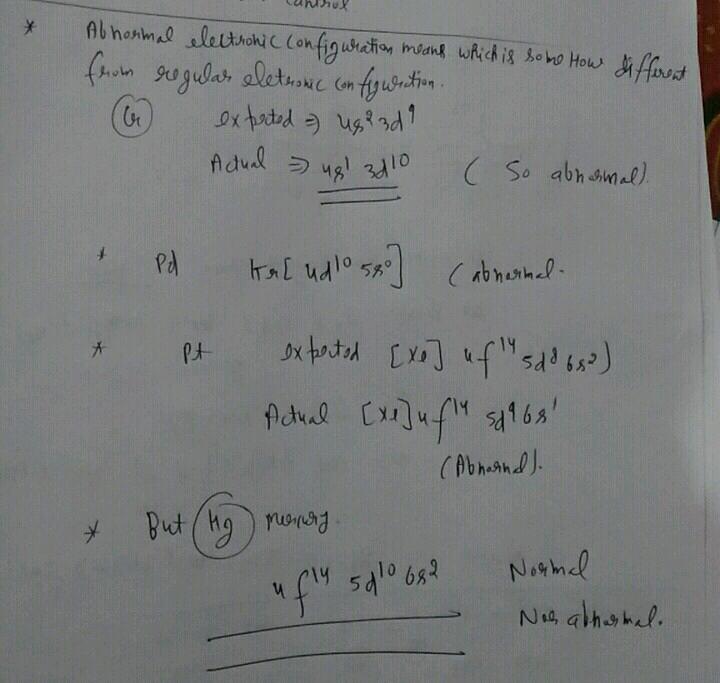 * Abnormal electronic configuration means which is some How different
from regular eletronic configuration.
Cr expected ⇒ 4s² 3d⁹
Actual ⇒ 4s¹ 3d¹⁰ ( So abnormal).
* Pd Kr[ 4d¹⁰ 5s⁰] (abnormal.
* Pt expected [Xe] 4f¹⁴ 5d⁸ 6s²)
Actual [Xe] 4f¹⁴ 5d⁹ 6s¹
(Abnormal).
* But Hg mercury.
4f¹⁴ 5d¹⁰ 6s² Normal
Not abnormal.